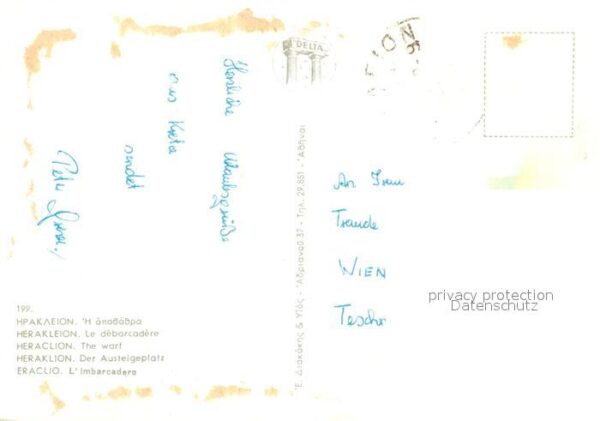 DELTA
Herzliche Urlaubsgrüße
aus Kreta
sendet
An Frau
Traude
WIEN
privacy protection
Datenschutz
199.
ΗΡΑΚΛΕΙΟΝ. Ἡ ἀποβάθρα
HERAKLEION. Le débarcadère
HERACLION. The warf
HERAKLION. Der Austeigeplatz
ERACLIO. L'Imbarcadero
Ἔ. Διακάκης & Υἱός - Ἀδριανοῦ 37 - Τηλ. 29.851 - Ἀθῆναι